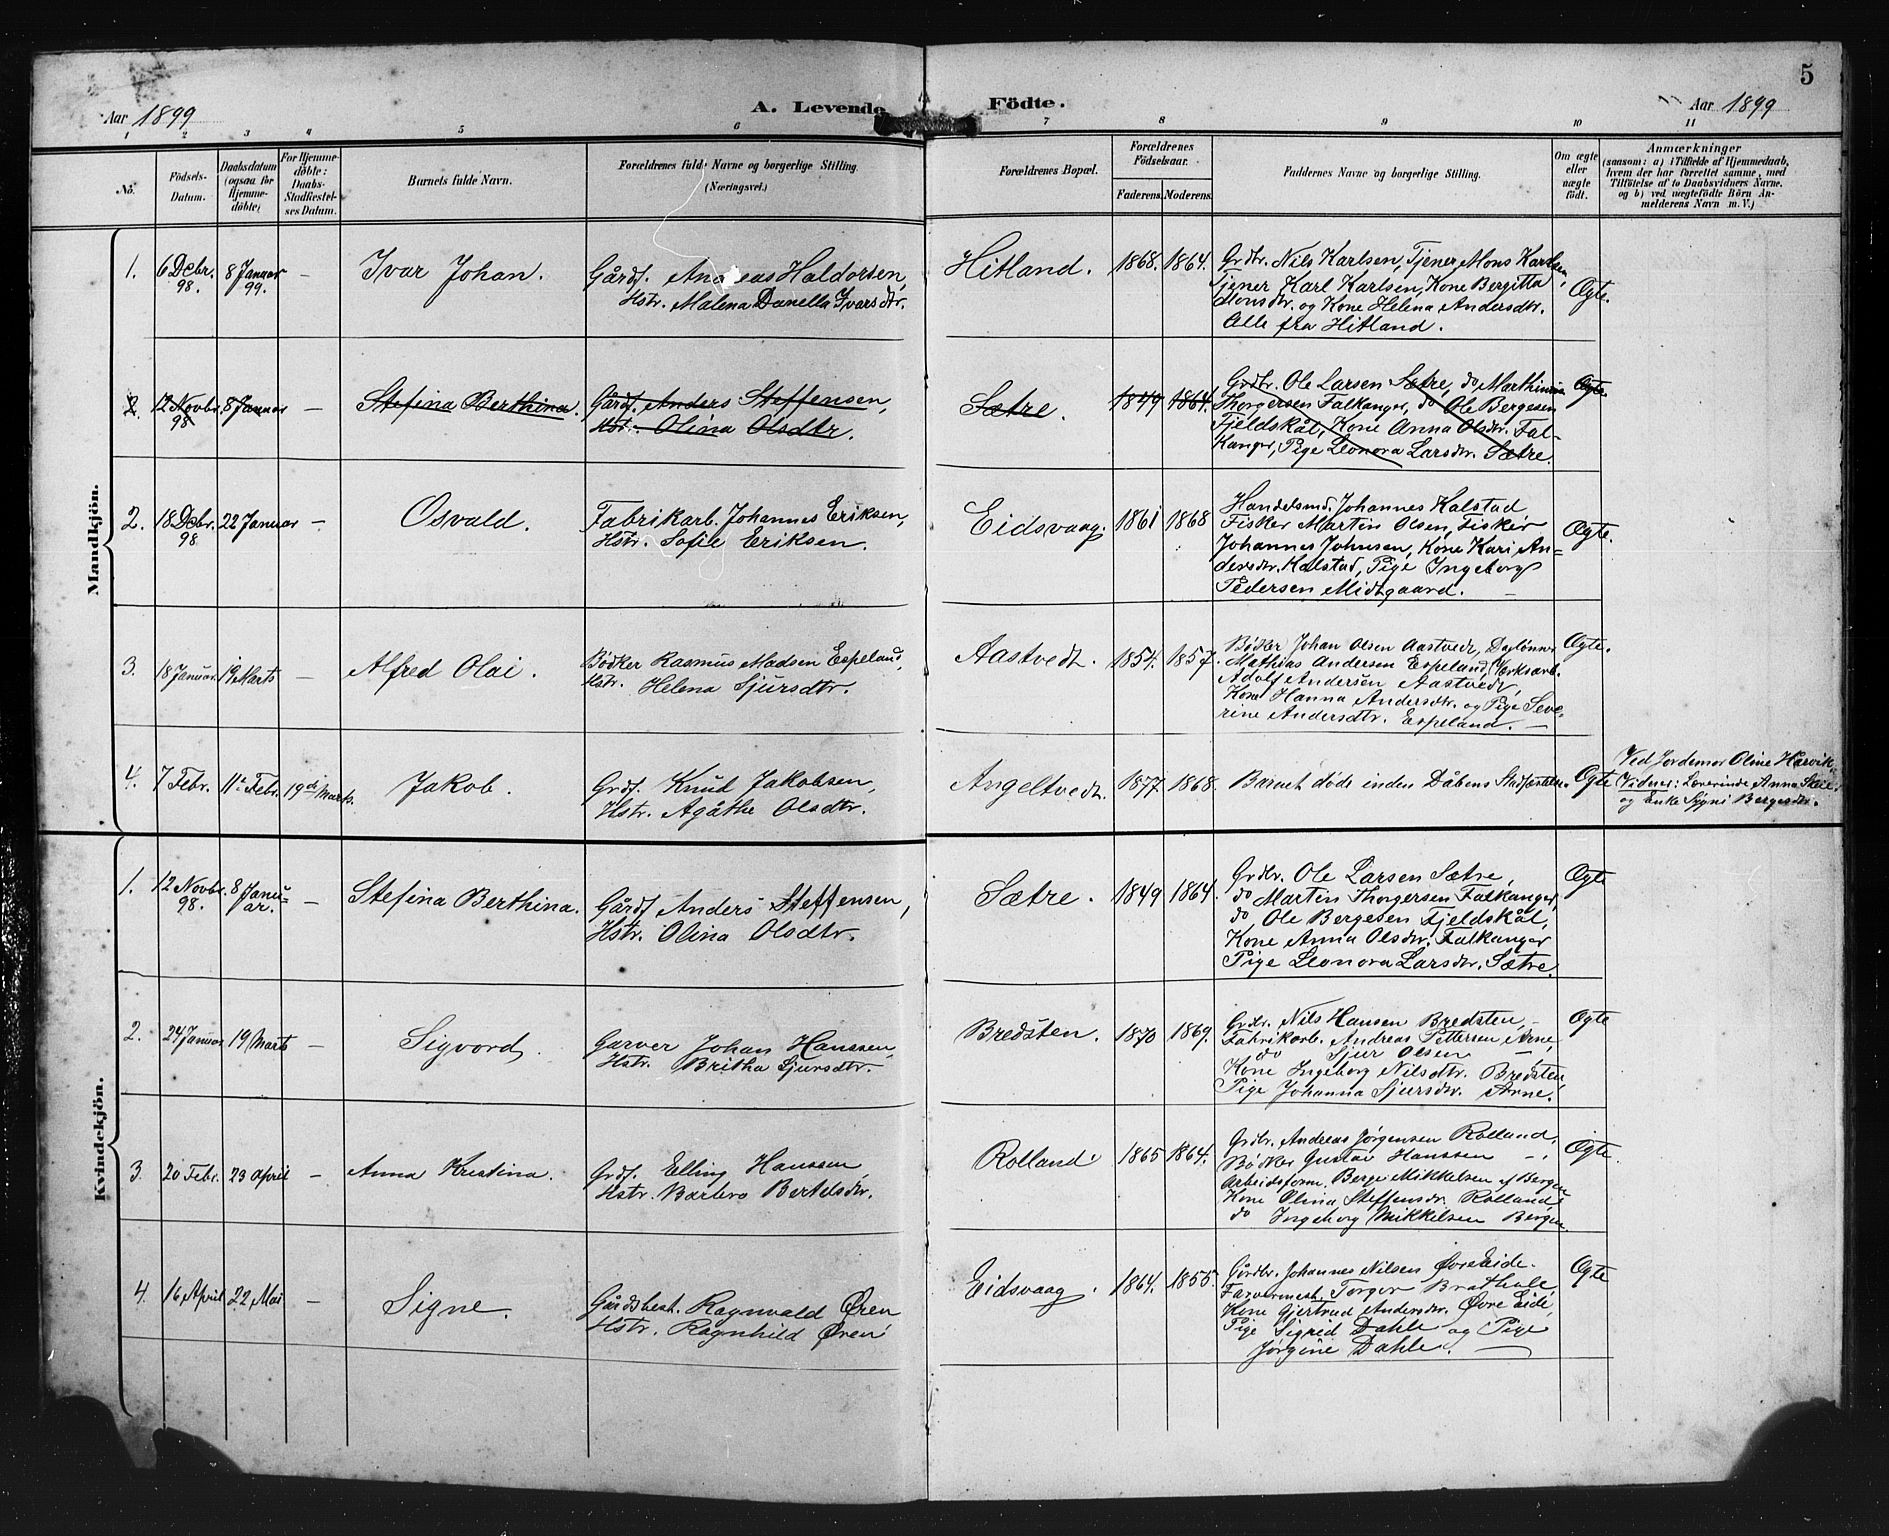 5
Aar 1899
A. Levende Födte.
Aar 1899
1 2 3 4 5 6 7 8 9 10 11
No.
Födsels-Datum.
Daabsdatum (ogsaa for Hjemme-döbte)
For Hjemme-döbte: Daabs-Stadfæstel-ses Datum.
Barnets fulde Navn.
Forældrenes fulde Navne og borgerlige Stilling.
(Næringsvei.)
Forældrenes Bopæl.
Forældrenes Födselsaar.
Faderens. Moderens.
Faddernes Navne og borgerlige Stilling.
Om ægte eller uægte födt.
Anmærkninger
(saasom: a) i Tilfælde af Hjemmedaab,
hvem der har forrettet samme, med
Tilföielse af to Daabsvidners Navne,
og b) ved uægtefödte Börn An-
melderens Navn m. V.)
Mandkjön.
1. 6 Debr. 98. 8 Januar 99. – Ivar Johan.
Gårdf. Andreas Haldorsen,
Hstr. Malena Danella Ivarsdtr.
Hitland. 1868. 1864.
Grdbr. Nils Karlsen, Tjener Mons Karlsen,
Tjener Karl Karlsen, Kone Bergitta
Monsdtr. og Kone Helena Andersdtr.
Alle fra Hitland.
Ægte.
2. 12 Novbr. 98 8 Januar – Stefina Berthina.
Gårdf. Anders Steffensen,
Hstr. Olina Olsdtr.
Sætre. 1849 1864.
Grdbr. Ole Larsen Sætre, do Marthinus
Thorgersen Falkanger, do Ole Bergesen
Fjeldskål, Kone Anna Olsdtr. Fal-
kanger, Pige Leonora Larsdtr. Sætre.
Ægte.
2. 18 Debr. 98 22 Januar – Osvald.
Fabrikarb. Johannes Eriksen,
Hstr. Sofie Eriksen.
Eidsvaag. 1861 1868
Handelsmd. Johannes Kalstad
Fisker Martin Olsen, Fisker
Johannes Johnsen, Kone Kari An=
dersdtr. Kalstad, Pige Ingeborg
Pedersen Midtgaard. –
Ægte.
3. 18 Januar. 19 Marts – Alfred Olai.
Bødker Rasmus Madsen Espeland,
Hstr. Helena Sjursdtr.
Aastvedt. 1854. 1857.
Bødker Johan Olsen Aastvedt, Daglønner
Mathias Andersen Espeland, Værksarb.
Adolf Andersen Aastvedt,
Kone Hanna Andersdtr. og Pige Seve-
rine Andersdtr. Espeland. –
Ægte.
4. 7 Febr. 11te Febr. 19de Marts. Jakob.
Grdf. Knud Jakobsen,
Hstr. Agåthe Olsdtr.
Angeltvedt. 1877. 1868.
Barnet døde inden Dåbens Stadfæstelse.
Ægte
Ved Jordemor Oline Harvik.
Vidner: Lærerinde Anna Skeie
og Enke Sygni Bergesdtr.
Kvindekjön.
1. 12 Novbr. 98. 8 Janu-ar. – Stefina Berthina.
Gårdf Anders Steffensen,
Hstr. Olina Olsdtr.
Sætre. 1849 1864.
Grdbr. Ole Larsen Sætre,
do Martin Thorgersen Falkanger,
do Ole Bergesen Fjeldskål,
Kone Anna Olsdtr. Falkanger
Pige Leonora Larsdtr. Sætre.
Ægte
2. 24 Januar. 19 Marts – Sigvord.
Garver Johan Hanssen,
Hstr. Britha Sjursdtr.
Bredsten. 1870 1869.
Grdbr. Nils Hansen Bredsten, –
Fabrikarb. Andreas Pettersen Arne,
do Sjur Olsen –
Kone Ingeborg Nilsdtr. Bredsten,
Pige Johanna Sjursdtr. Arne.
Ægte
3. 20 Febr. 23 April – Anna Kristina.
Grdf. Elling Hanssen
Hstr. Barbro Bertelsdtr.
Rolland. 1865 1864.
Grdbr. Andreas Jørgensen Rolland,
Bødker Gustav Hanssen –
Arbeidsform. Berge Mikkelsen af Bergen
Kone Olina Steffensdtr. Rolland,
do Ingeborg Mikkelsen Bergen.
Ægte.
4. 16 April 22 Mai – Signe.
Gårdsbest. Ragnvald Øren
Hstr. Ragnhild Øren
Eidsvaag. 1864. 1855.
Gårdbr. Johannes Nilsen Øvre Eide.
Farvermest. Torger Brathole,
Kone Gjertrud Andersdtr. Øvre Eide,
Pige Sigrid Dahle og Pige
Jørgine Dahle. –
Ægte